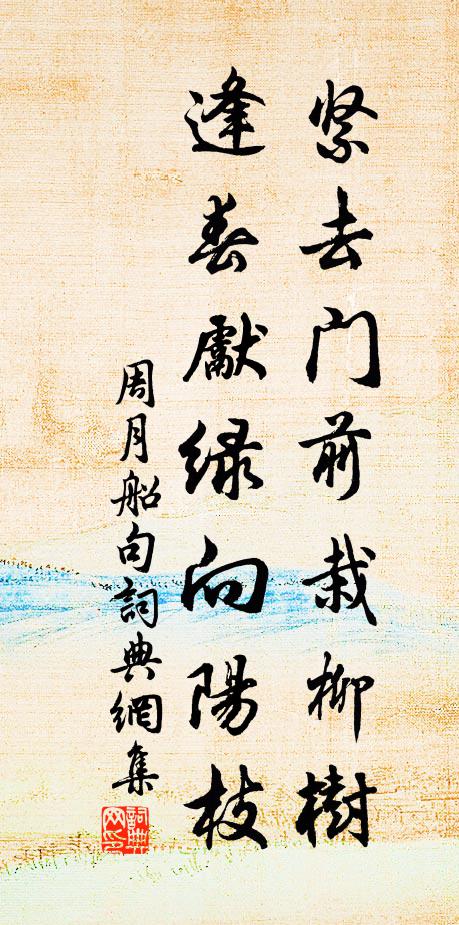 紧去门前栽柳樹
逢春獻緑向陽枝
周月船句詞典網集
詞典网印